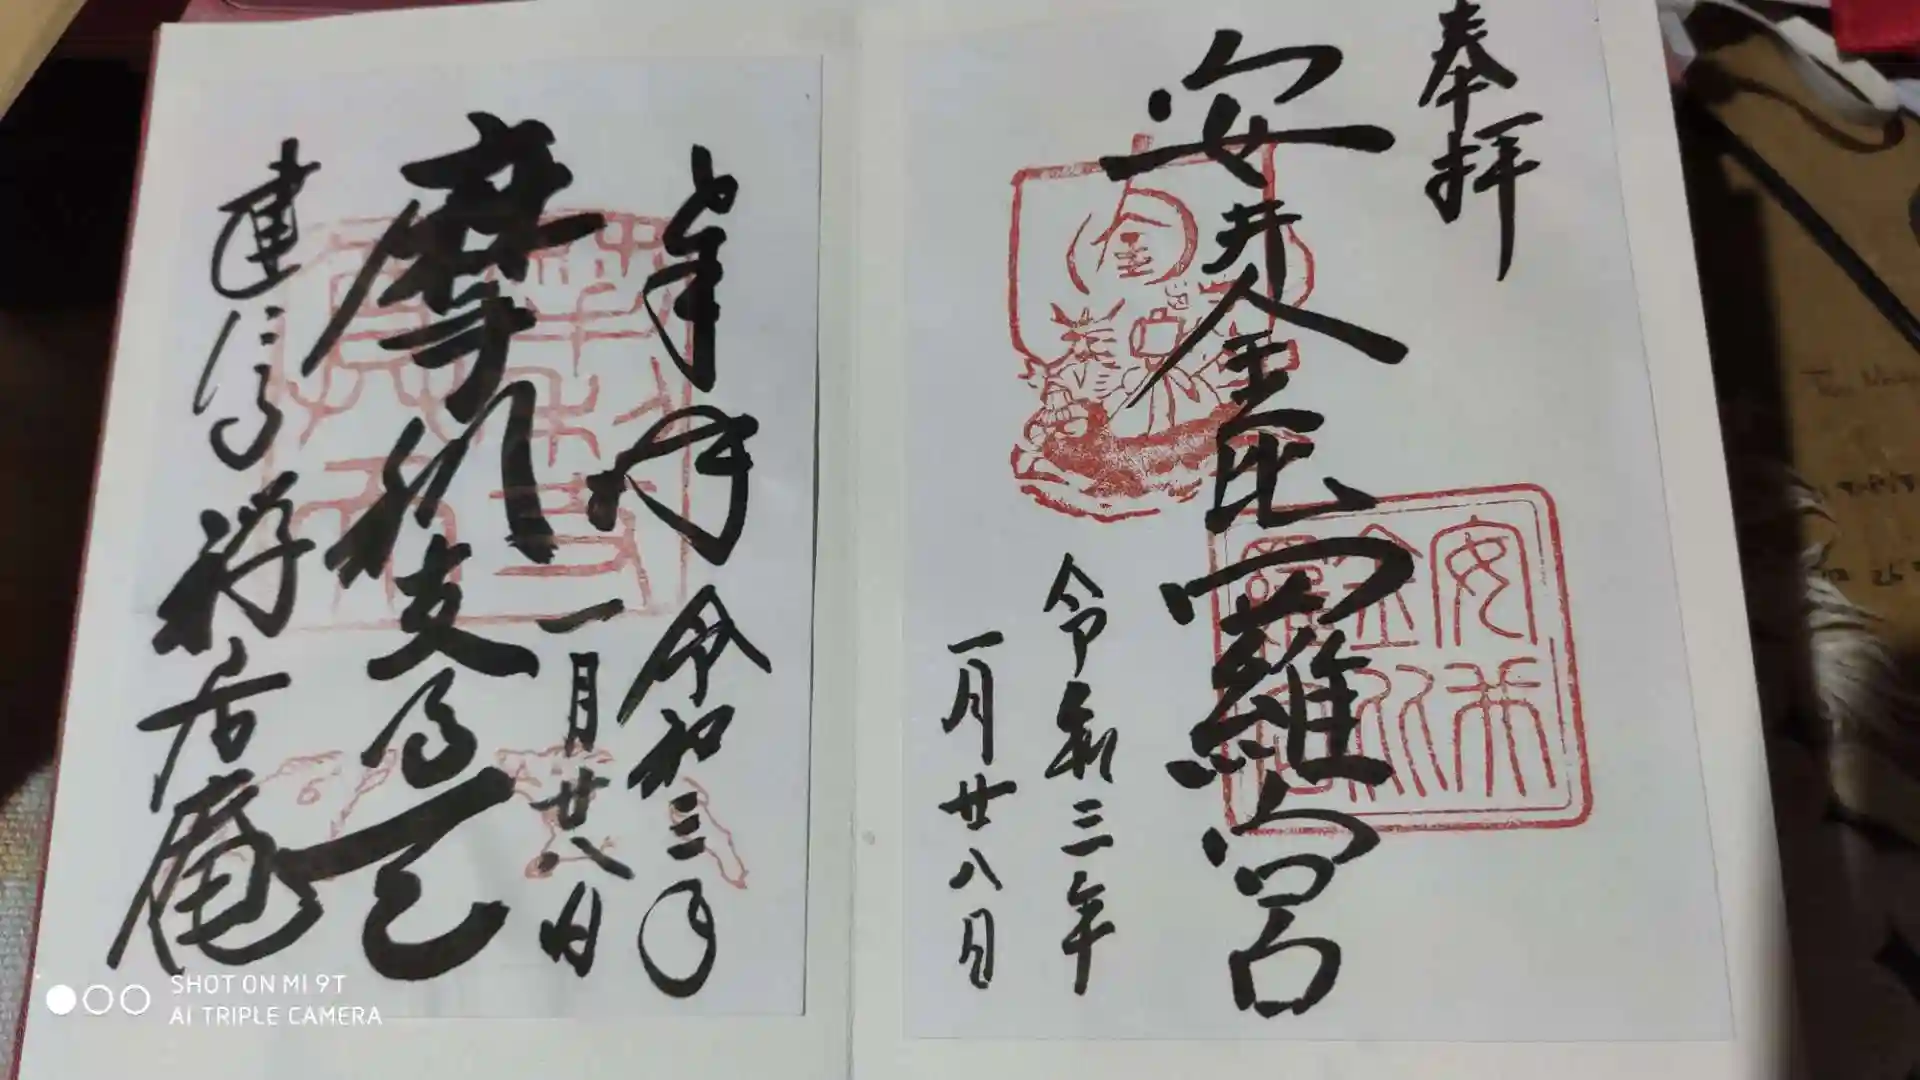 奉拝
安井金比羅宮
令和三年
一月廿八日
金
安井
奉拝 令和三年
一月廿八日
摩利支尊天
建仁寺 禅居庵
SHOT ON MI 9T
AI TRIPLE CAMERA